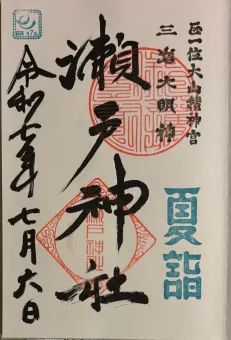 正一位大山積神宮
三島大明神
瀬戸神社
夏詣
令和七年七月六日